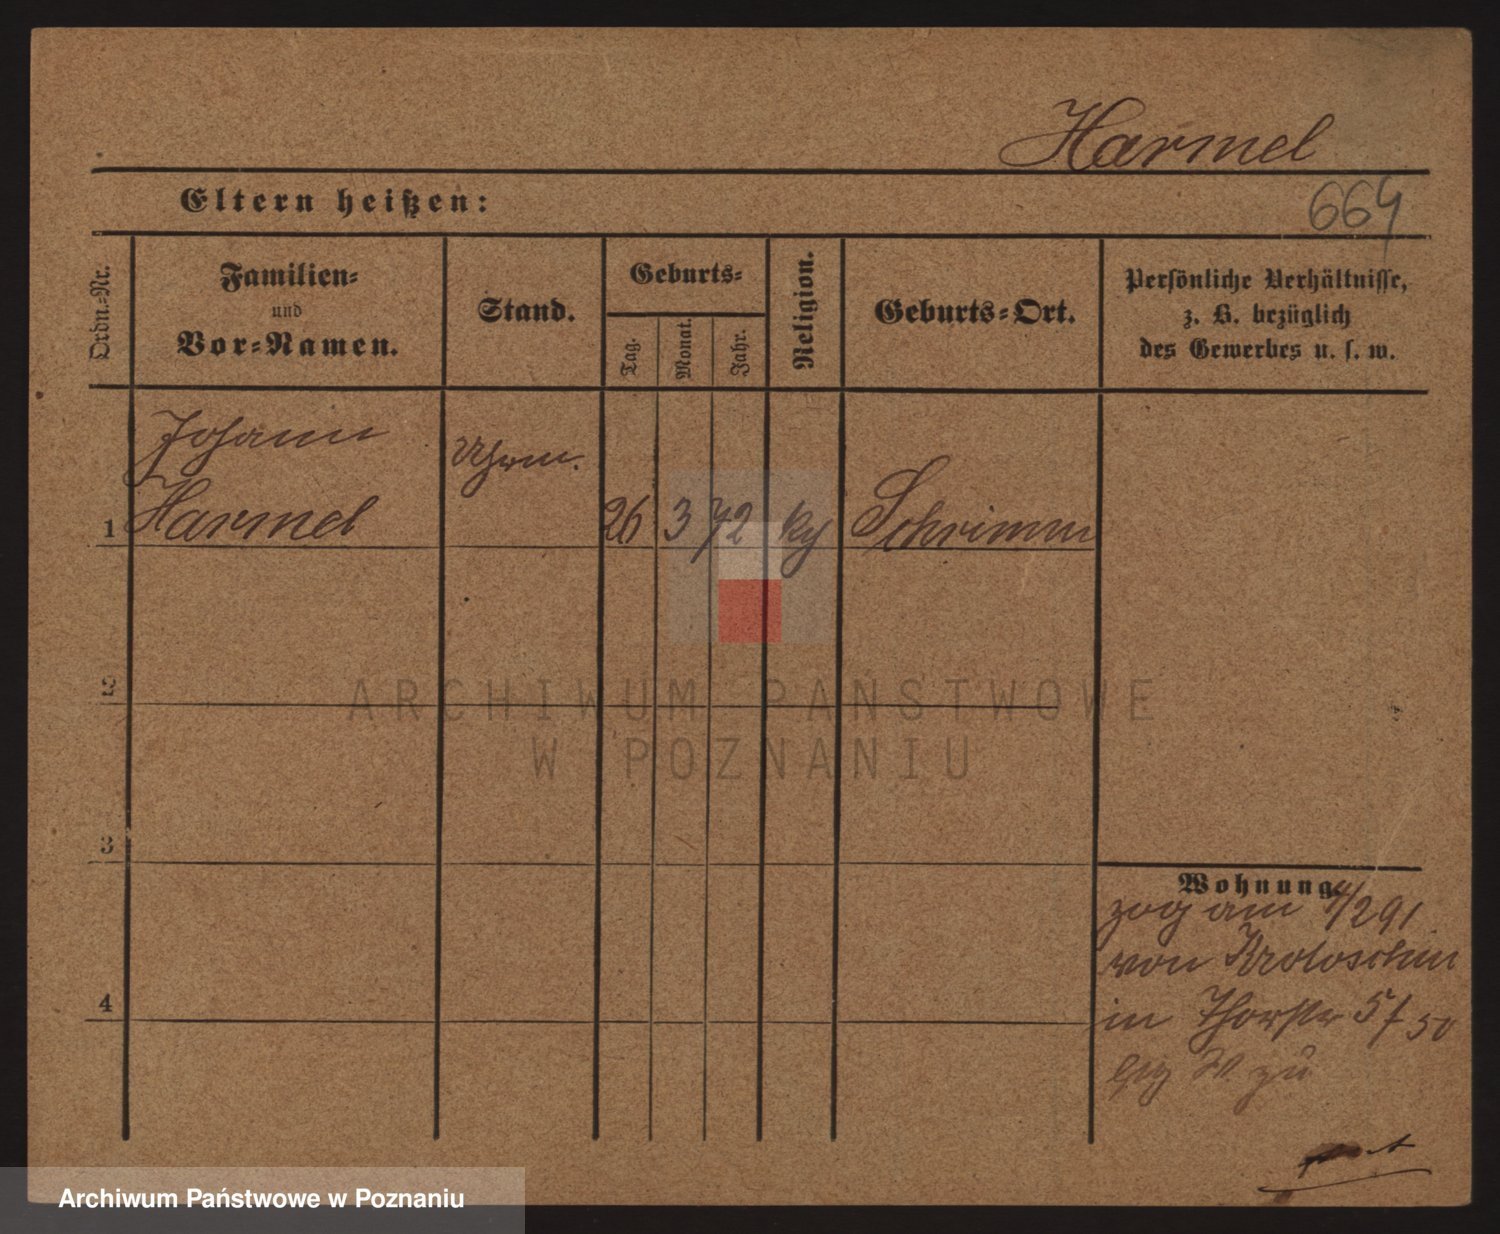 Harmel
664
Eltern heißen:
Ordn.-Nr.
Familien-
und
Vor-Namen.
Stand.
Geburts-
Tag.
Monat.
Jahr.
Religion.
Geburts-Ort.
Persönliche Verhältnisse,
z. B. bezüglich
des Gewerbes u. s. w.
Johann
Uhrm.
1 Harmel 26 3 72 Schrimm
2
ARCHIWUM PAŃSTWOWE
W POZNANIU
3
Wohnung.
zog am 4/2 91
von Krotoschin
4
in Thorstr 5 / 50
W zu
Archiwum Państwowe w Poznaniu